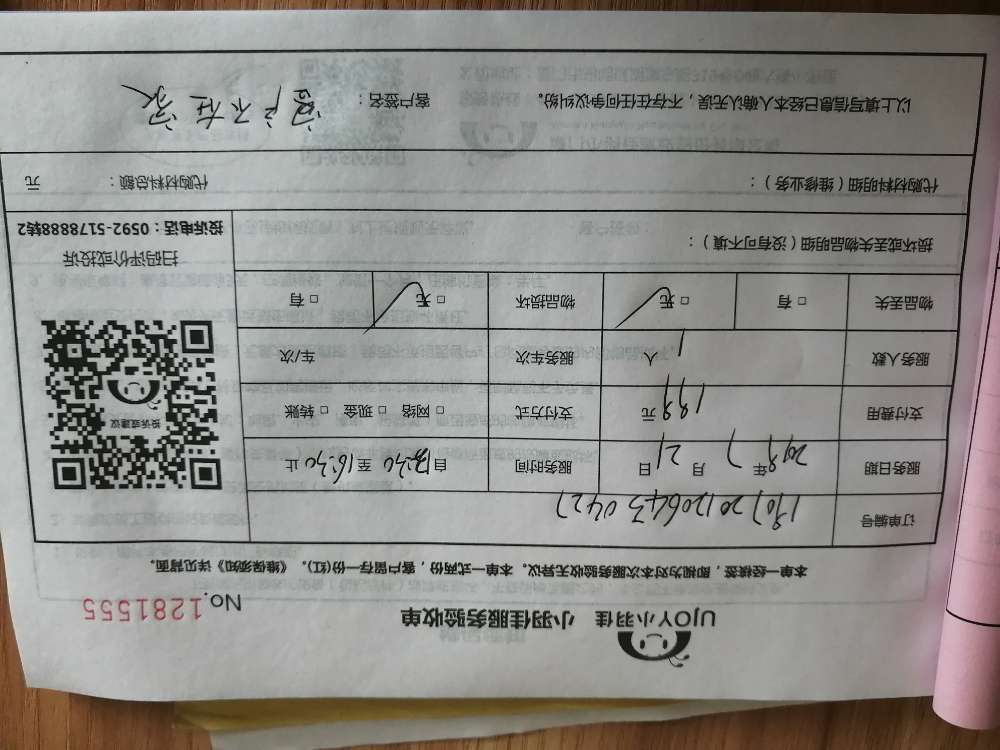 UJOY小羽佳 小羽佳服务验收单
No.1281555
本单一经填签，即视为对本次服务验收无异议。本单一式两份，客户留存一份(红)。《维保须知》详见背面。
订单编号 190720120643 0427
服务日期 2019年7月21日 服务时间 自13:30至16:30止
支付费用 199元 支付方式 □ 网络 □ 现金 □ 转账
服务人数 1人 服务车次 车/次
物品丢失 □ 有 □ 无 物品损坏 □ 无 □ 有
损坏或丢失物品明细（没有可不填）：
投诉或建议
扫码评价或投诉
投诉电话：0592-5178888转2
代购材料明细（维修业务）： 代购材料总额： 元
以上填写信息已经本人确认无误，不存在任何争议纠纷。 客户签名： 客户不在家